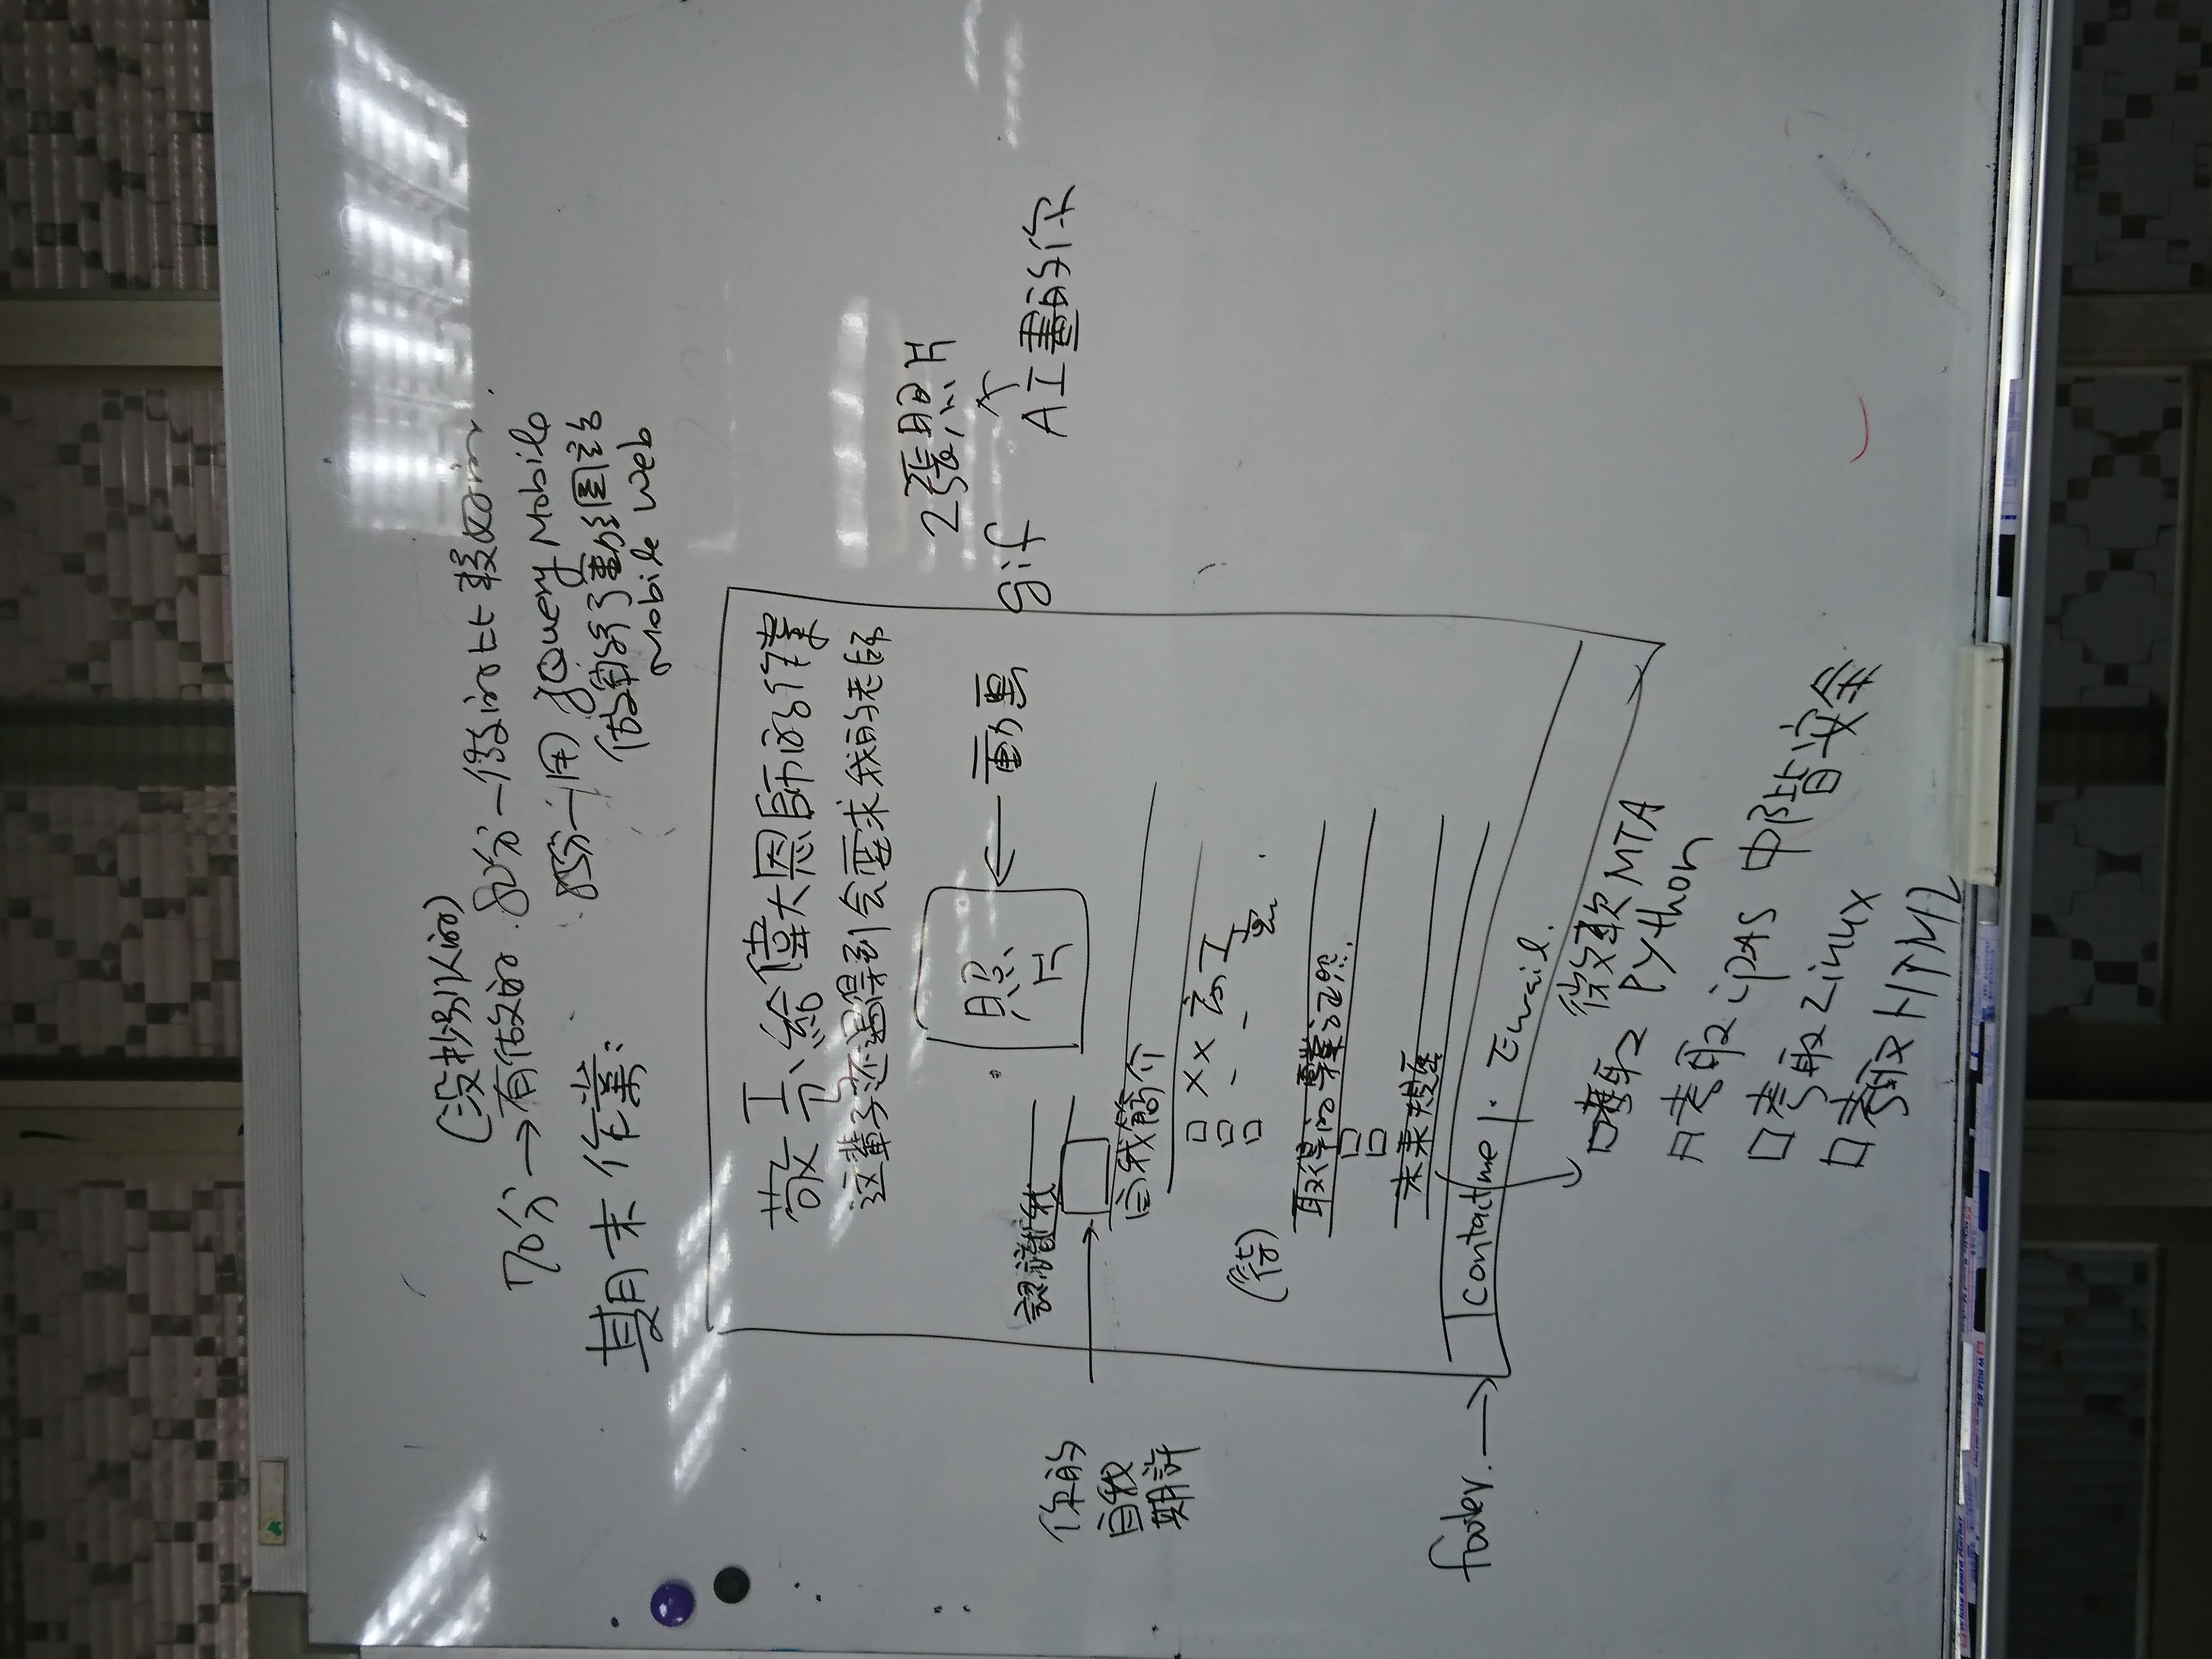 (沒抄別人的)
70分→有做的. 80分—做的比較好的.
85分—用 jQuery Mobile
做行動網站
Mobile Web
期末作業:
敬 給偉大恩師的作業
这輩子还遇得到会要求我的老師
照片
← 動畫 gif
2張照片
↑
AI畫的你
認識我
你的
自我
期許
自我簡介
□ ×× 高工
□ - -
□
(待)
取得的專業证照.
□
□
未來規畫
footer. →
contact me | . Email.
□考取 微軟MTA
Python
□考取 iPAS 中階安全
□考取 Linux
□考取 HTML
White Board Marker